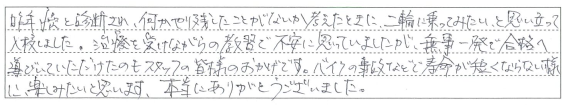 昨年癌と診断され、何かやり残したことがないか考えたときに、二輪に乗ってみたい、と思い立って
入校しました。治療を受けながらの教習で不安に思っていましたが、無事一発で合格へ
導びいていただけたのもスタッフの皆様のおかげです。バイクの事故などで寿命が短くならない様
に、楽しみたいと思います。本当にありがとうございました。